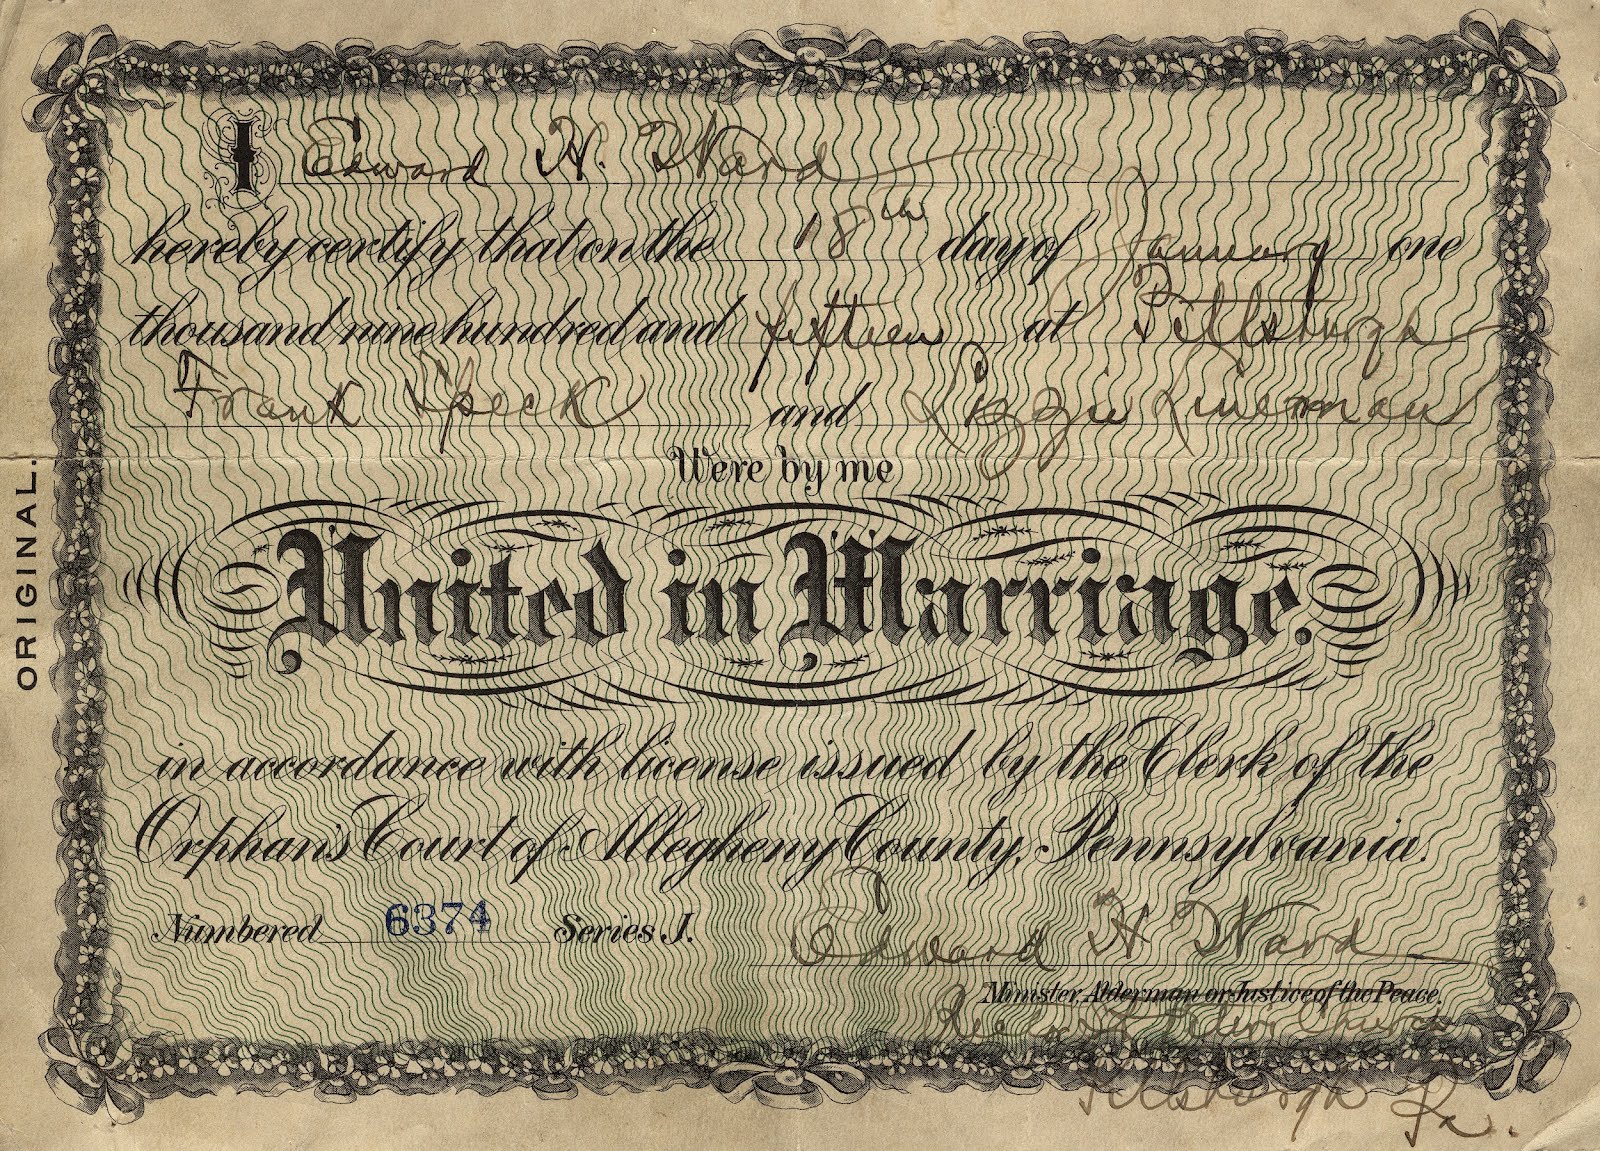 I Edward H. Ward
hereby certify that on the 18th day of January one
thousand nine hundred and fifteen at Pittsburgh
Frank Speck and Lizzie Lineman
Were by me
United in Marriage.
in accordance with license issued by the Clerk of the
Orphan's Court of Allegheny County, Pennsylvania.
Numbered 6374 Series J. Edward H Ward
Minister, Alderman or Justice of the Peace.
Rector St Peters Church
Pittsburgh Pa.
ORIGINAL.